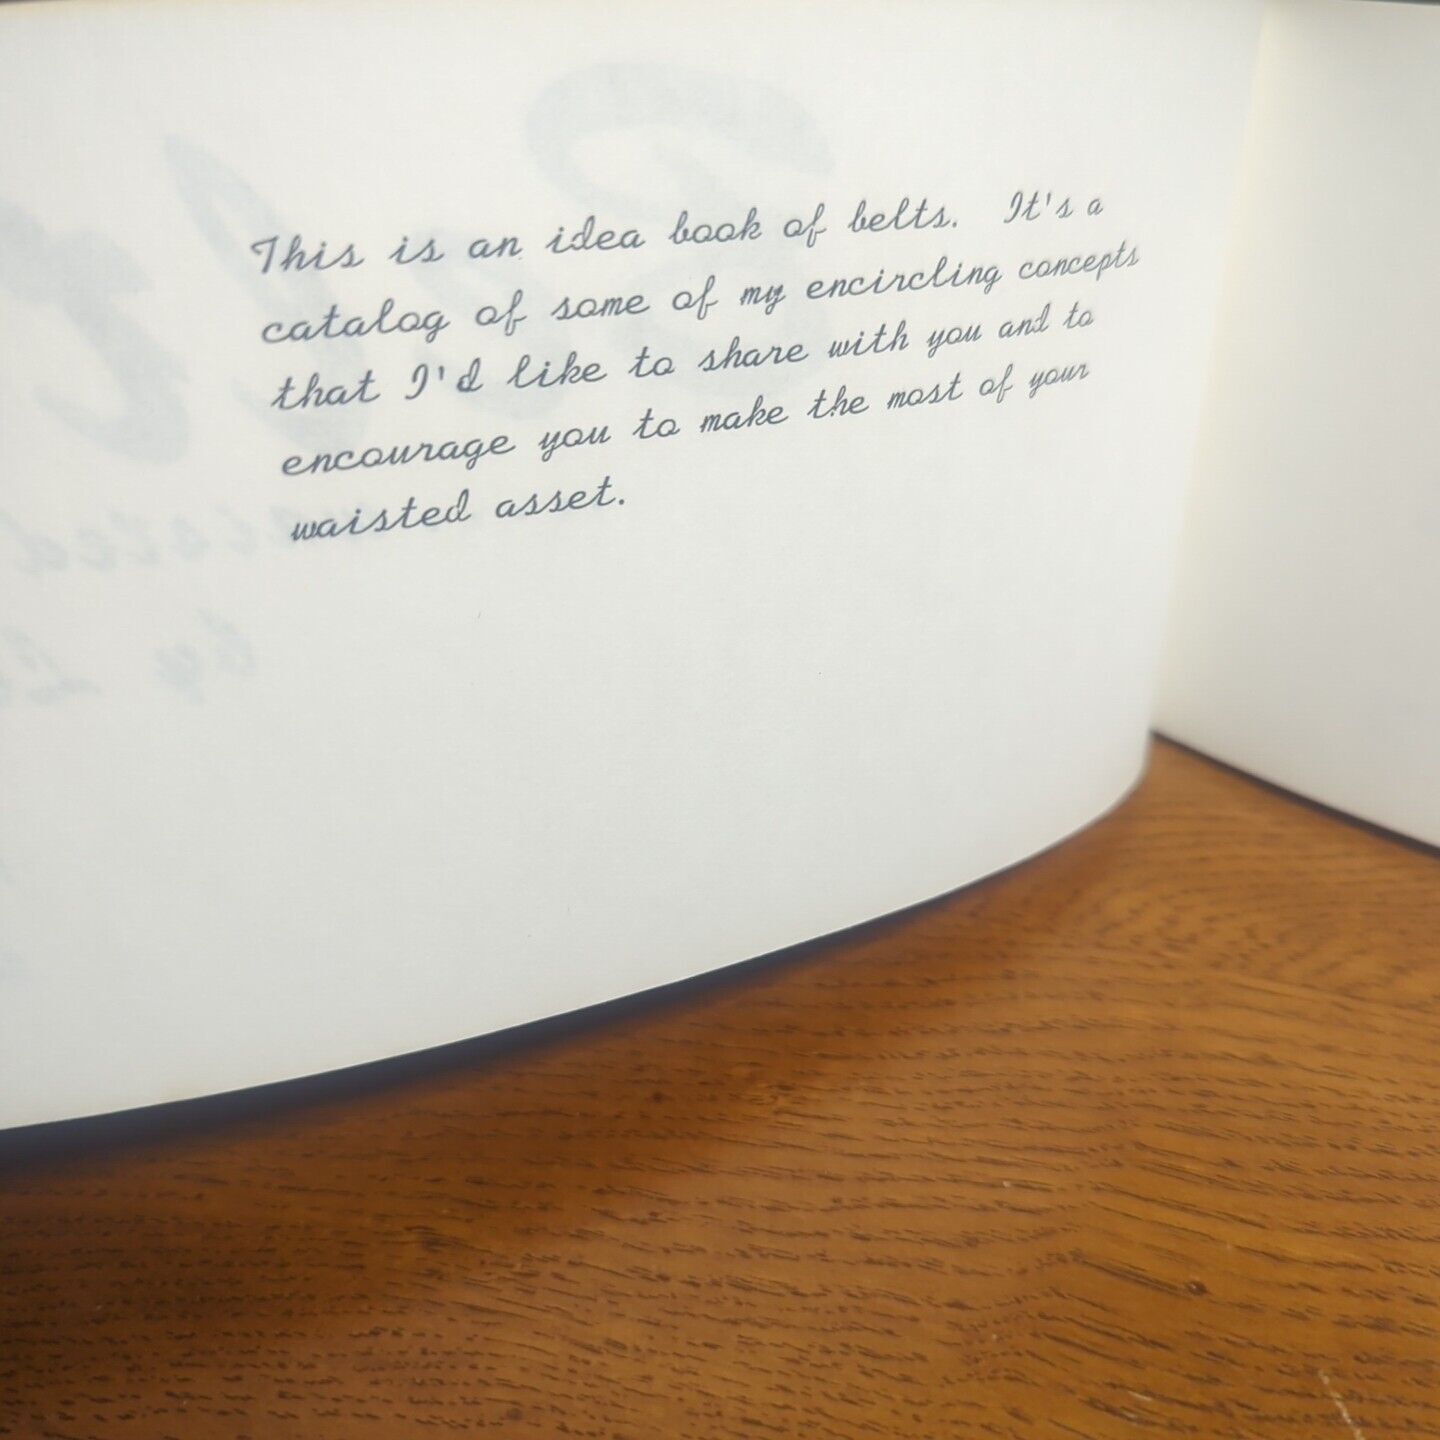 This is an idea book of belts. It's a
catalog of some of my encircling concepts
that I'd like to share with you and to
encourage you to make the most of your
waisted asset.